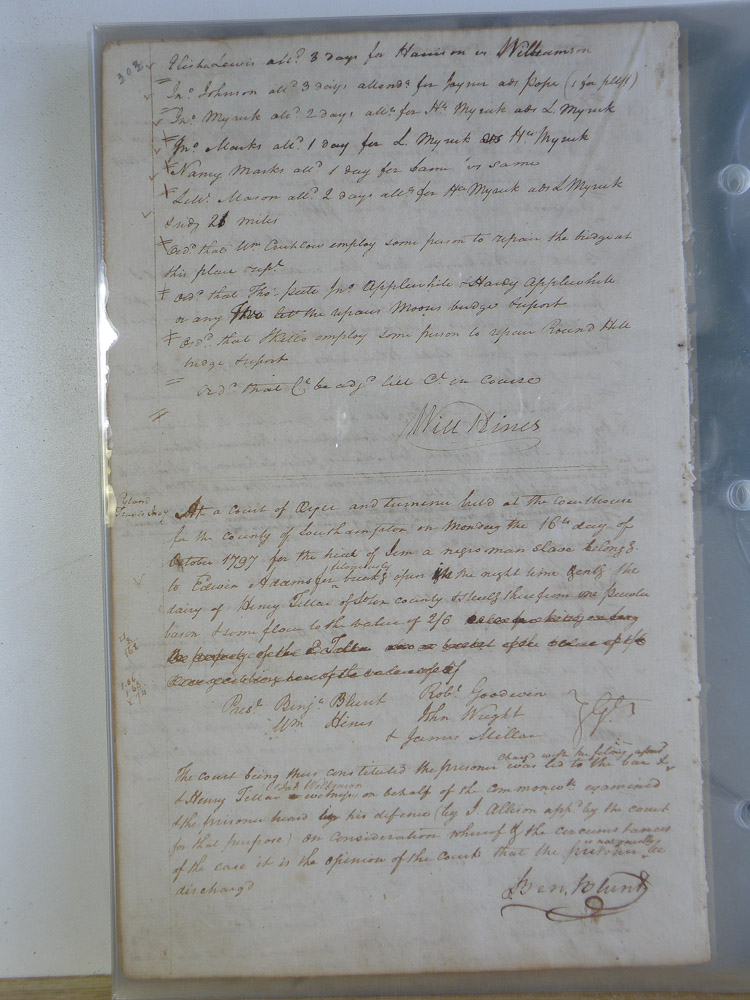 303
Elisha Lewis alld. 3 days for Harrison vs Williamson
Jno. Johnson alld. 3 days attends. for Joyner ads Pope (1 for pltff)
Jno. Myrick alld. 2 days atte. for Ha Myrick ads L. Myrick
Jno. Marks alld. 1 day for L. Myrick ads Ha Myrick
Nancy Marks alld. 1 day for same vs same
Mason alld. 2 days atte for Ha Myrick ads L Myrick
& 26 miles
Ord. that Wm Crichlow employ some person to repair the bridge at
this place & rept.
Ord. that Tho. Peete Jno Applewhite & Hardy Applewhite
or any Two let the repairs Moores bridge & report
Ord. that employ some person to repair Round Hill
bridge & report
Ord. that Ct. be adjd. till Ct. in course
Will Hines
At a Court of Oyer and terminer held at the Courthouse
for the county of Southampton on Monday the 16th day of
October 1797 for the trial of Jem a negro man slave belongg.
to Edwin Adams for feloniously breakg open in the night time the
dairy of Henry Tellar of Soton county & stealg therefrom one pewter
bason & some flour to the value of 2/6
the property of the
of the value of
Pres. Benja Blunt Robt. Goodwin
Wm Hines John Wright } Gt.
& James Millar
The court being thus constituted the prisoner charg'd with the felony afsd was led to the bar &
& Henry Tellar & on behalf of the commonwth. examined
& the prisoner heard in his defence (by J. Allison appd. by the court
for that purpose) on consideration whereof & the circumstances
of the case it is the opinion of the Court that the prisoner is not guilty & be
dischargd
Ben. Blunt